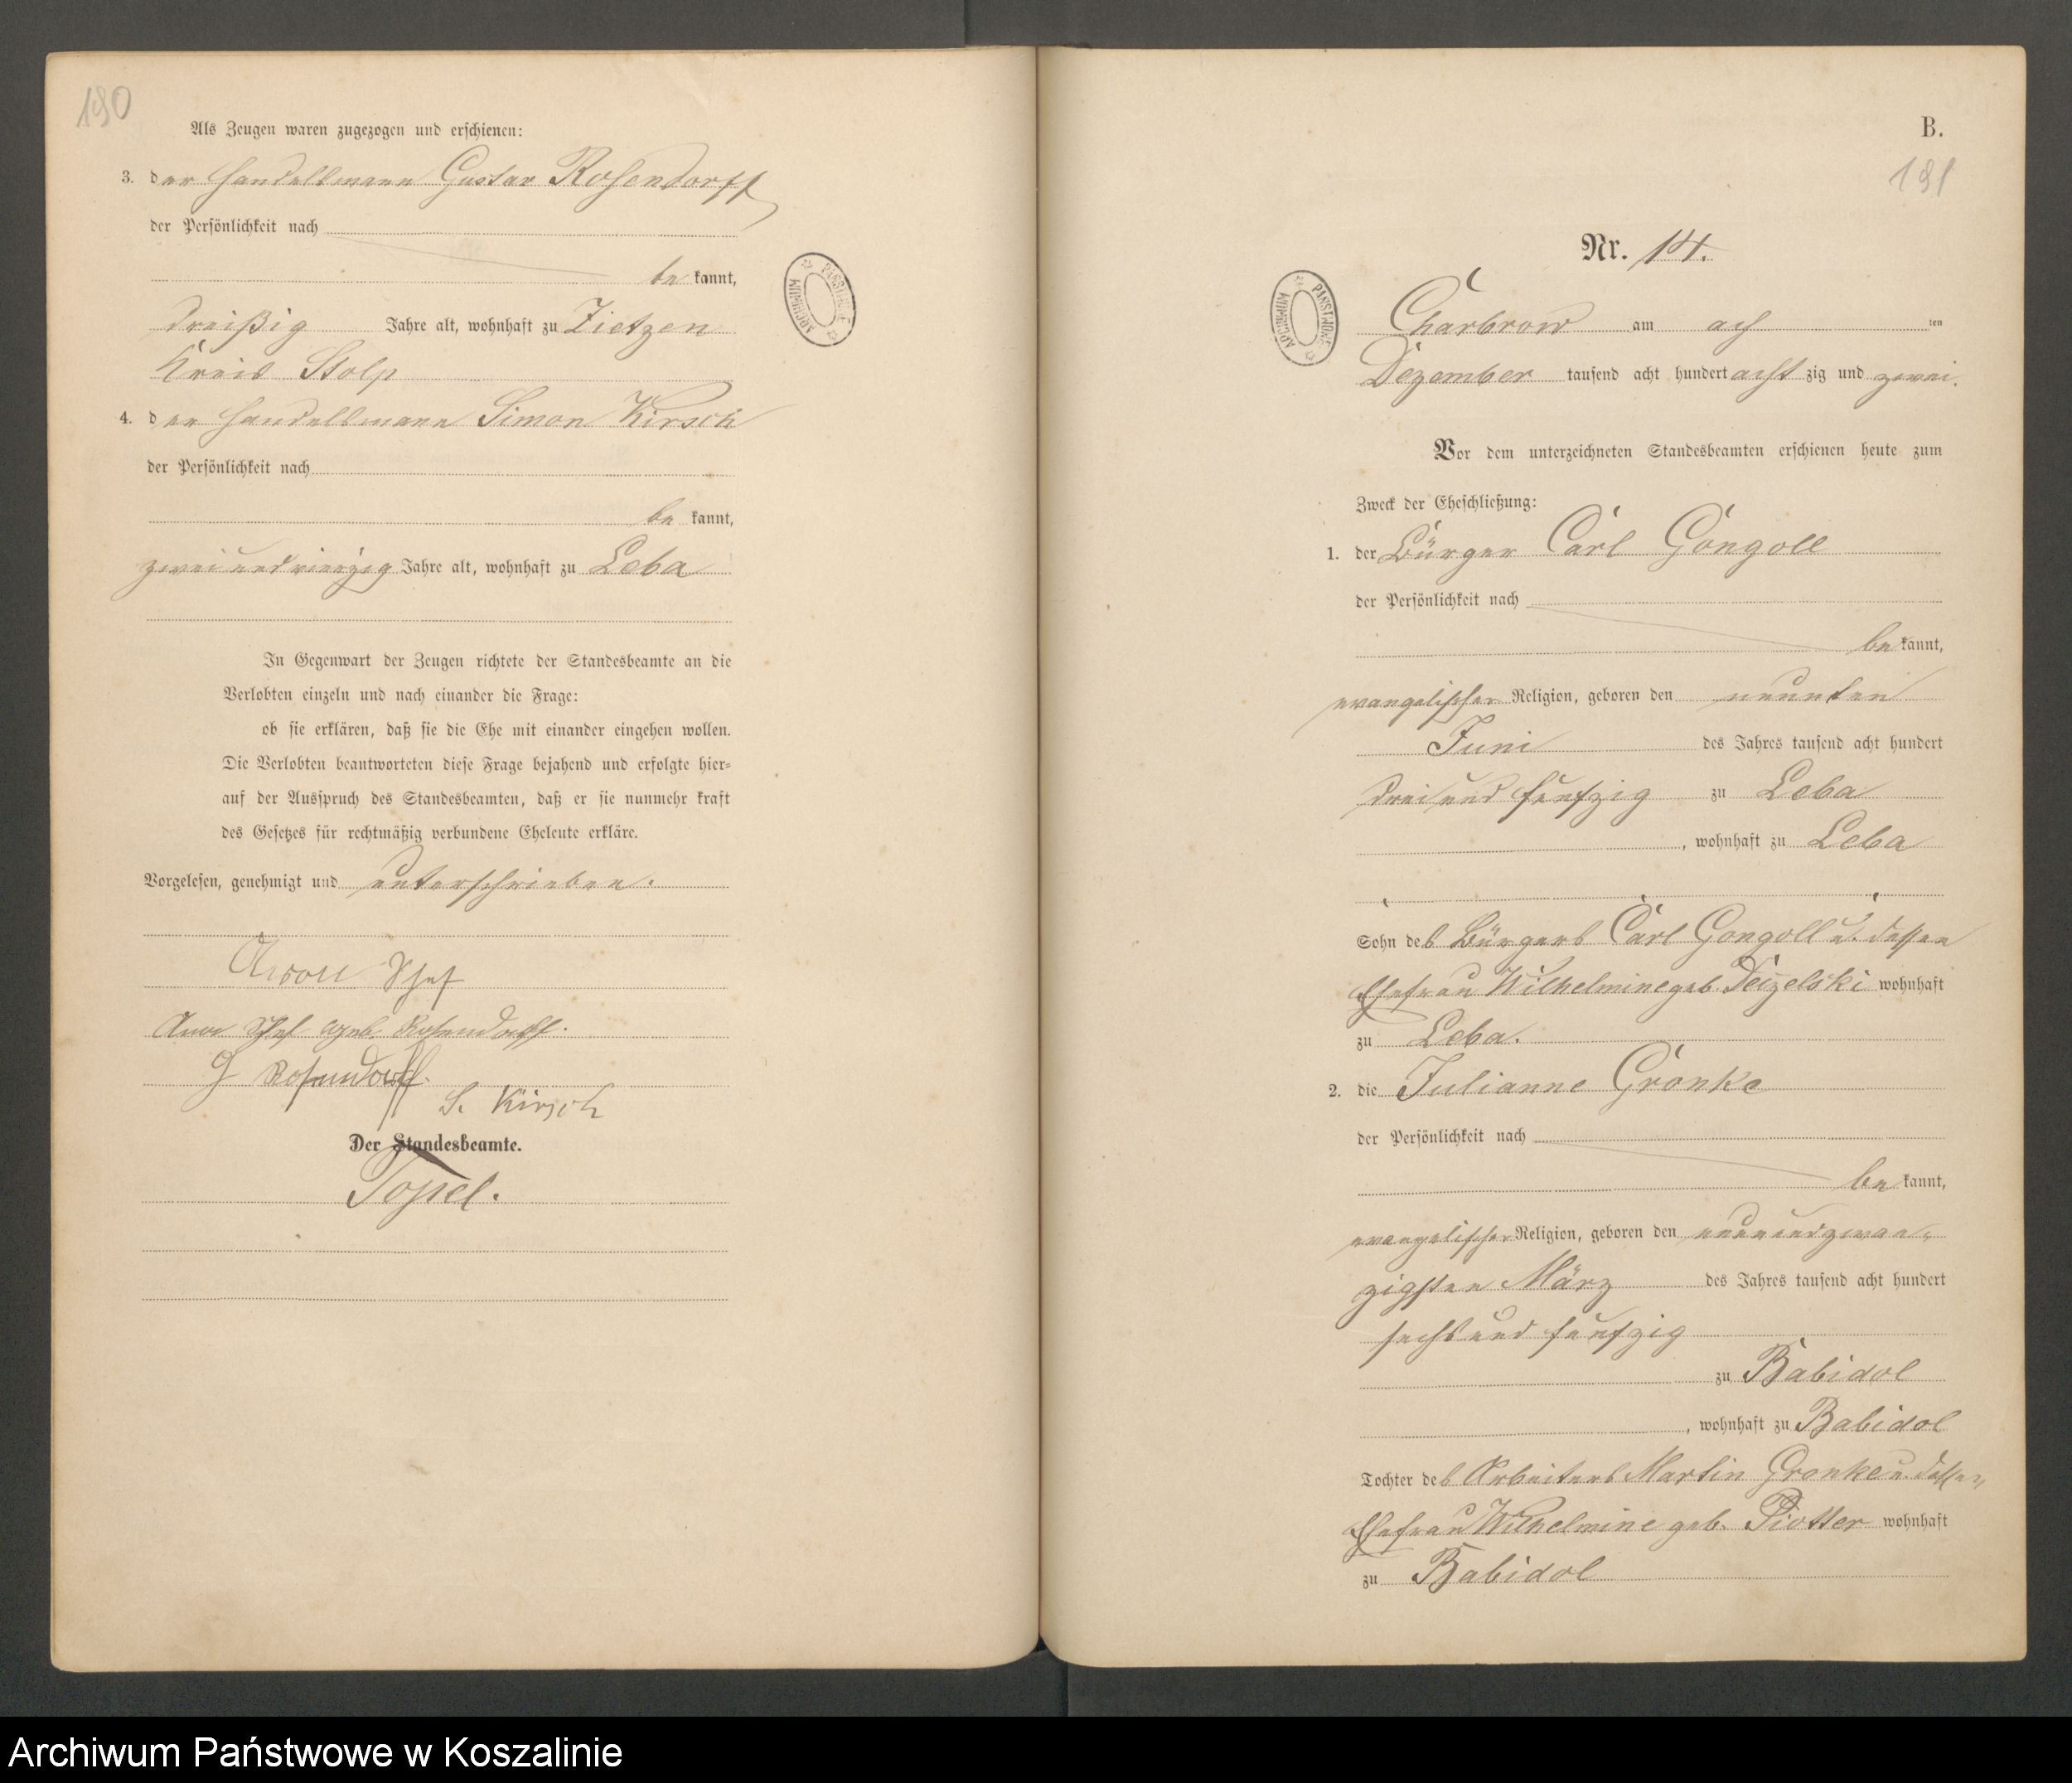 190
Als Zeugen waren zugezogen und erschienen:
3. der Handelsmann Gustav Rosendorff
der Persönlichkeit nach
be kannt,
dreißig Jahre alt, wohnhaft zu Zietzen
Kreis Stolp
4. der Handelsmann Simon Kirsch
der Persönlichkeit nach
be kannt,
zweiundvierzig Jahre alt, wohnhaft zu Leba
In Gegenwart der Zeugen richtete der Standesbeamte an die
Verlobten einzeln und nach einander die Frage:
ob sie erklären, daß sie die Ehe mit einander eingehen wollen.
Die Verlobten beantworteten diese Frage bejahend und erfolgte hier-
auf der Ausspruch des Standesbeamten, daß er sie nunmehr kraft
des Gesetzes für rechtmäßig verbundene Eheleute erkläre.
Vorgelesen, genehmigt und unterschrieben.
geb. Rosendorff.
G Rosendorff.
S. Kirsch
Der Standesbeamte.
B.
191
Nr. 14.
ARCHIWUM PAŃSTWOWE
ARCHIWUM PAŃSTWOWE
Charbrow am ach ten
Dezember tausend acht hundert acht zig und zwei.
Vor dem unterzeichneten Standesbeamten erschienen heute zum
Zweck der Eheschließung:
1. der Bürger Carl Gongoll
der Persönlichkeit nach
be kannt,
evangelischer Religion, geboren den neunten
Juni des Jahres tausend acht hundert
dreiundfünfzig zu Leba
, wohnhaft zu Leba
Sohn des Bürgers Carl Gongoll u. dessen
Ehefrau Wilhelmine geb. Deizelski wohnhaft
zu Leba.
2. die Julianne Gronke
der Persönlichkeit nach
be kannt,
evangelischer Religion, geboren den neunundzwan-
zigsten März des Jahres tausend acht hundert
sechsundfünfzig
zu Babidol
, wohnhaft zu Babidol
Tochter des Arbeiters Martin Gronke u. dessen
Ehefrau Wilhelmine geb. Piotter wohnhaft
zu Babidol
Archiwum Państwowe w Koszalinie